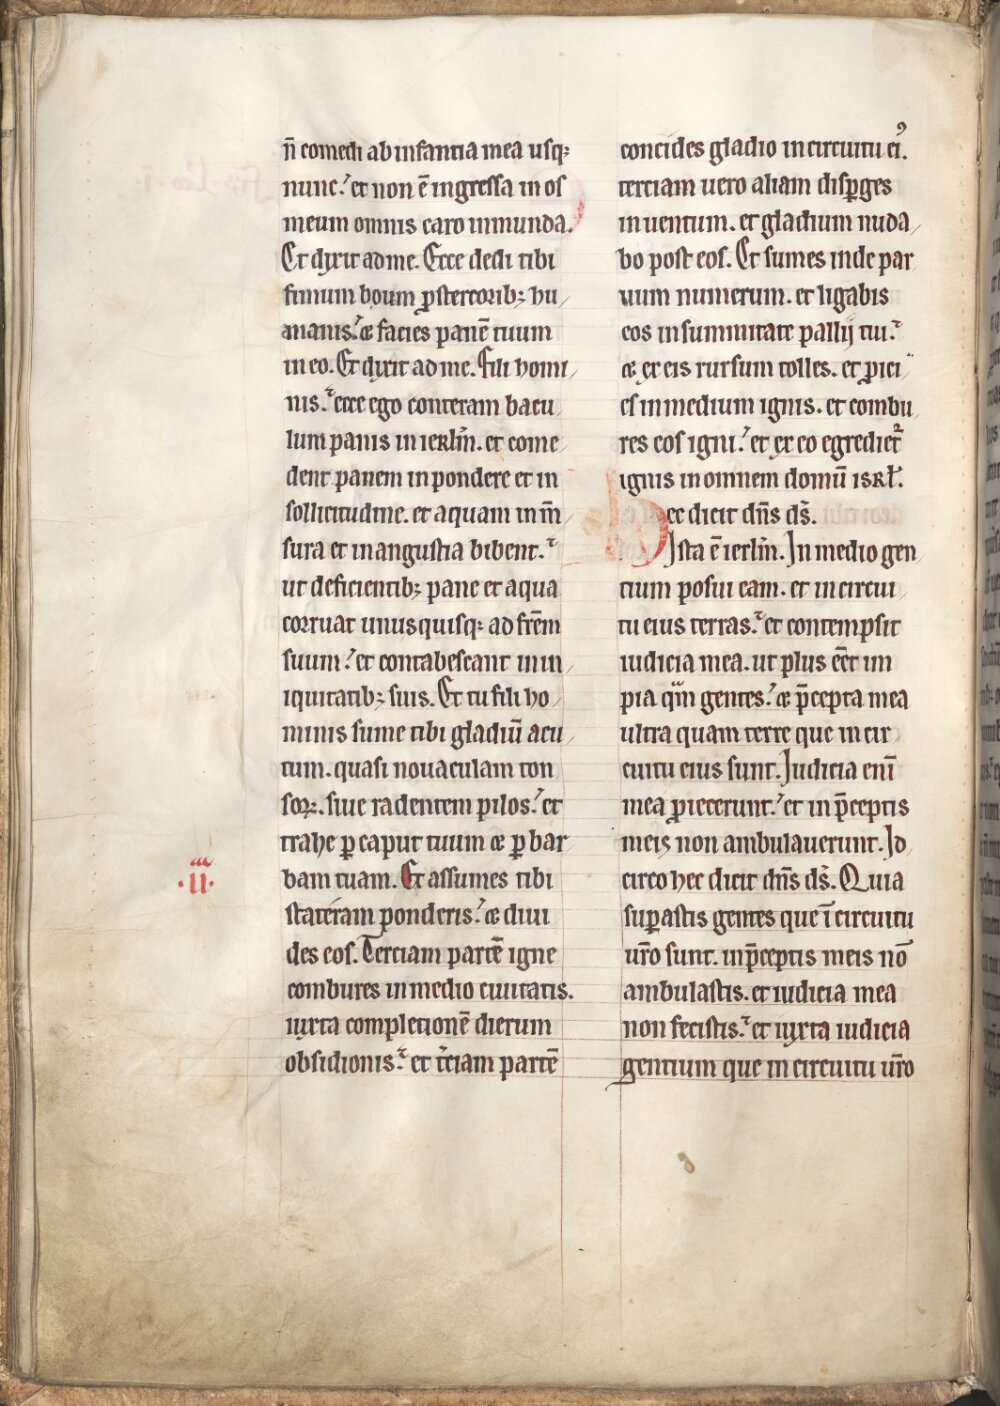 n̄ comedi ab infantia mea usq;
nunc. et non ē ingressa in os
meum omnis caro inmunda.
Et dixit ad me. Ecce dedi tibi
fimum boum p̱ stercorib; hu
manis. & facies panē tuum
in eo. Et dixit ad me. Fili homi
nis. ecce ego conteram bacu
lum panis in ierl̄m. et come
dent panem in pondere et in
sollicitudine. et aquam in m̄
sura et in angustia bibent.
ut deficientib; pane et aqua
corruat unusquisq; ad fr̄em
suum. et contabescant in in
iquitatib; suis. Et tu fili ho
minis sume tibi gladiū acu
tum. quasi nouaculam ton
soꝝ. siue radentem pilos. et
trahe ꝑ caput tuum & ꝑ bar
bam tuam. Et assumes tibi
.iiii.
stateram ponderis. & diui
des eos. Terciam partē igne
combures in medio ciuitatis.
iuxta completionē dierum
obsidionis. et t̄ciam partē
concides gladio in circuitu eiꝰ.
terciam uero aliam disꝑges
in uentum. et gladium nuda
bo post eos. Et sumes inde par
uum numerum. et ligabis
eos in summitate pallij tui.
& ex eis rursum tolles. et ꝓici
es in medium ignis. et combu
res eos igni. et ex eo egrediet᷑
ignis in omnem domū isrł.
Hec dicit dn̄s ds̄.
Ista ē ierl̄m. In medio gen
tium posui eam. et in circui
tu eius terras. et contempsit
iudicia mea. ut plus eēt im
pia qͣm gentes. & p̄cepta mea
ultra quam terre que in cir
cuitu eius sunt. Iudicia enī
mea ꝓiecerunt. et in p̄ceptis
meis non ambulauerunt. Id
circo hec dicit dn̄s ds̄. Quia
suꝑastis gentes que ī circuitu
ur̄o sunt. in p̄ceptis meis nō
ambulastis. et iudicia mea
non fecistis. et iuxta iudicia
gentium que in circuitu ur̄o